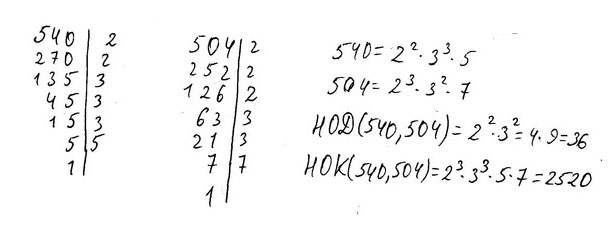 540 | 2
270 | 2
135 | 3
45 | 3
15 | 3
5 | 5
1 |
504 | 2
252 | 2
126 | 2
63 | 3
21 | 3
7 | 7
1 |
540 = 2² · 3³ · 5
504 = 2³ · 3² · 7
НОД(540,504) = 2² · 3² = 4 · 9 = 36
НОК(540,504) = 2³ · 3³ · 5 · 7 = 2520